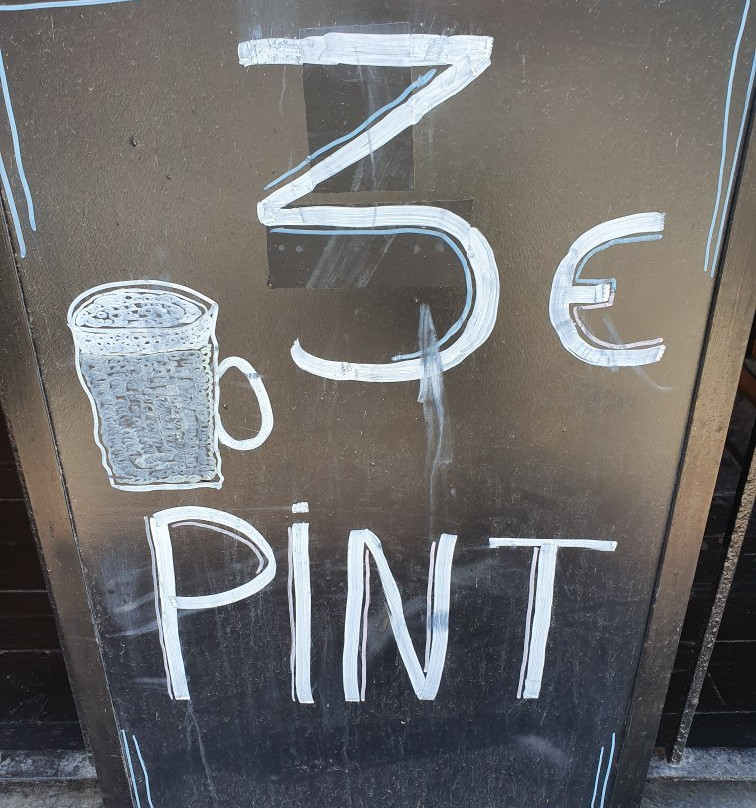 3 €
PiNT